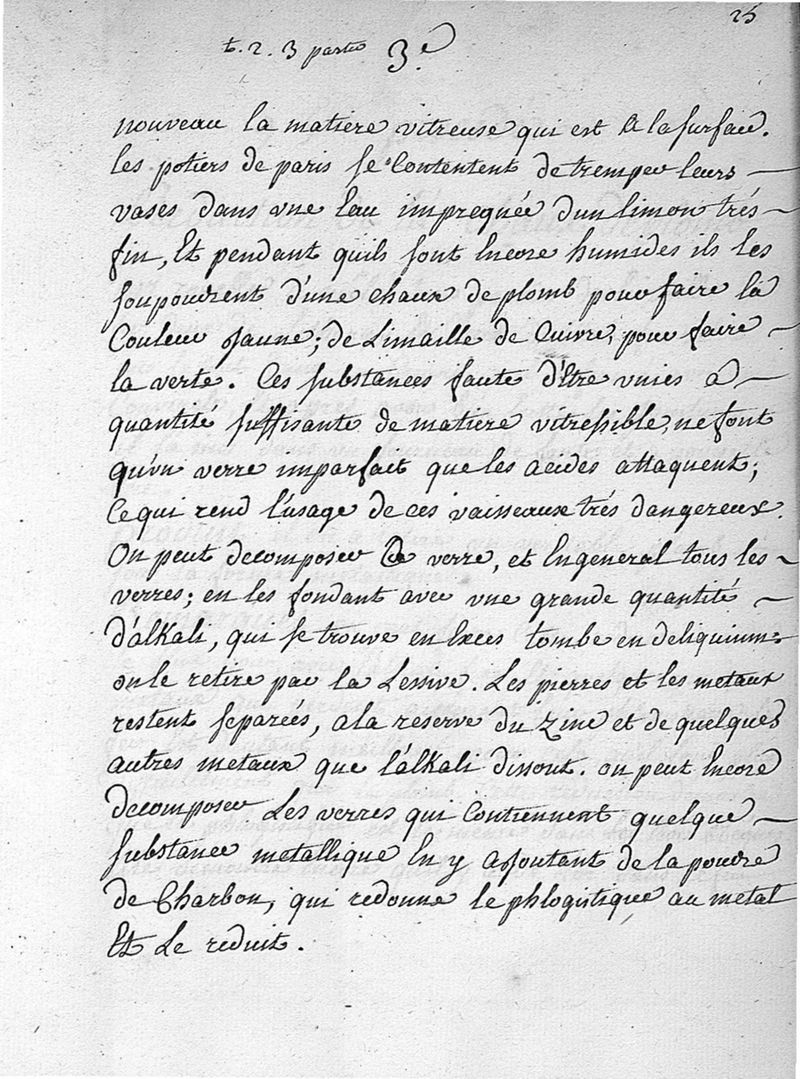 25
t. 2. 3 partie 3.e
nouveau la matiere vitreuse qui est a la surface.
les potiers de paris se Contentent de tremper leurs
vases dans une Eau impregnée d'un limon trés
fin, Et pendant quils sont Encore humides ils les
soupoudrent d'une chaux de plomb pour faire la
Couleur jaune; de Limaille de Cuivre, pour faire
la verte. Ces substances faute d'Etre unies a
quantité suffisante de matiere vitressible, ne font
qu'un verre imparfait que les acides attaquent;
Ce qui rend l'usage de ces vaisseaux trés dangereux.
On peut decomposer Ce verre, et En general tous les
verres; en les fondant avec une grande quantité
d'alkali, qui se trouve en Exces tombe en deliquium
on le retire par la Lessive. Les pierres et les metaux
restent separées, a la reserve du Zinc et de quelques
autres metaux que l'alkali dissout. on peut Encore
decomposer Les verres qui Contiennent quelque
substance metallique En y ajoutant de la poudre
de Charbon, qui redonne le phlogistique au metal
Et Le reduit.